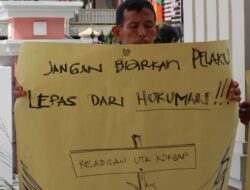 JANGAN BIARKAN PELAKU
LEPAS DARI HUKUMAN!!!
KEADILAN UTK KORBAN